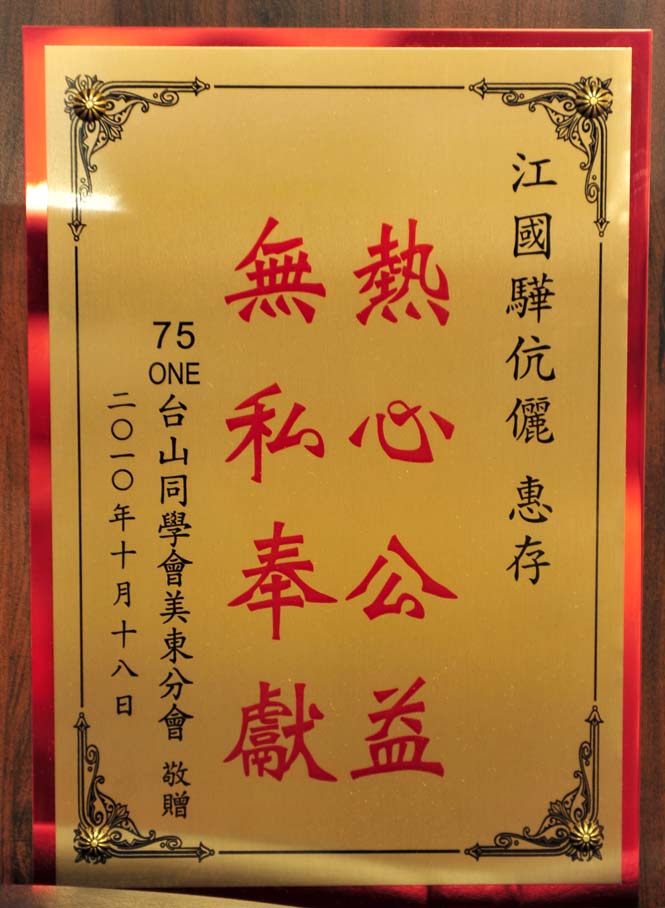 江國驊伉儷 惠存
熱心公益
無私奉獻
75 ONE 台山同學會美東分會 敬贈
二〇一〇年十月十八日